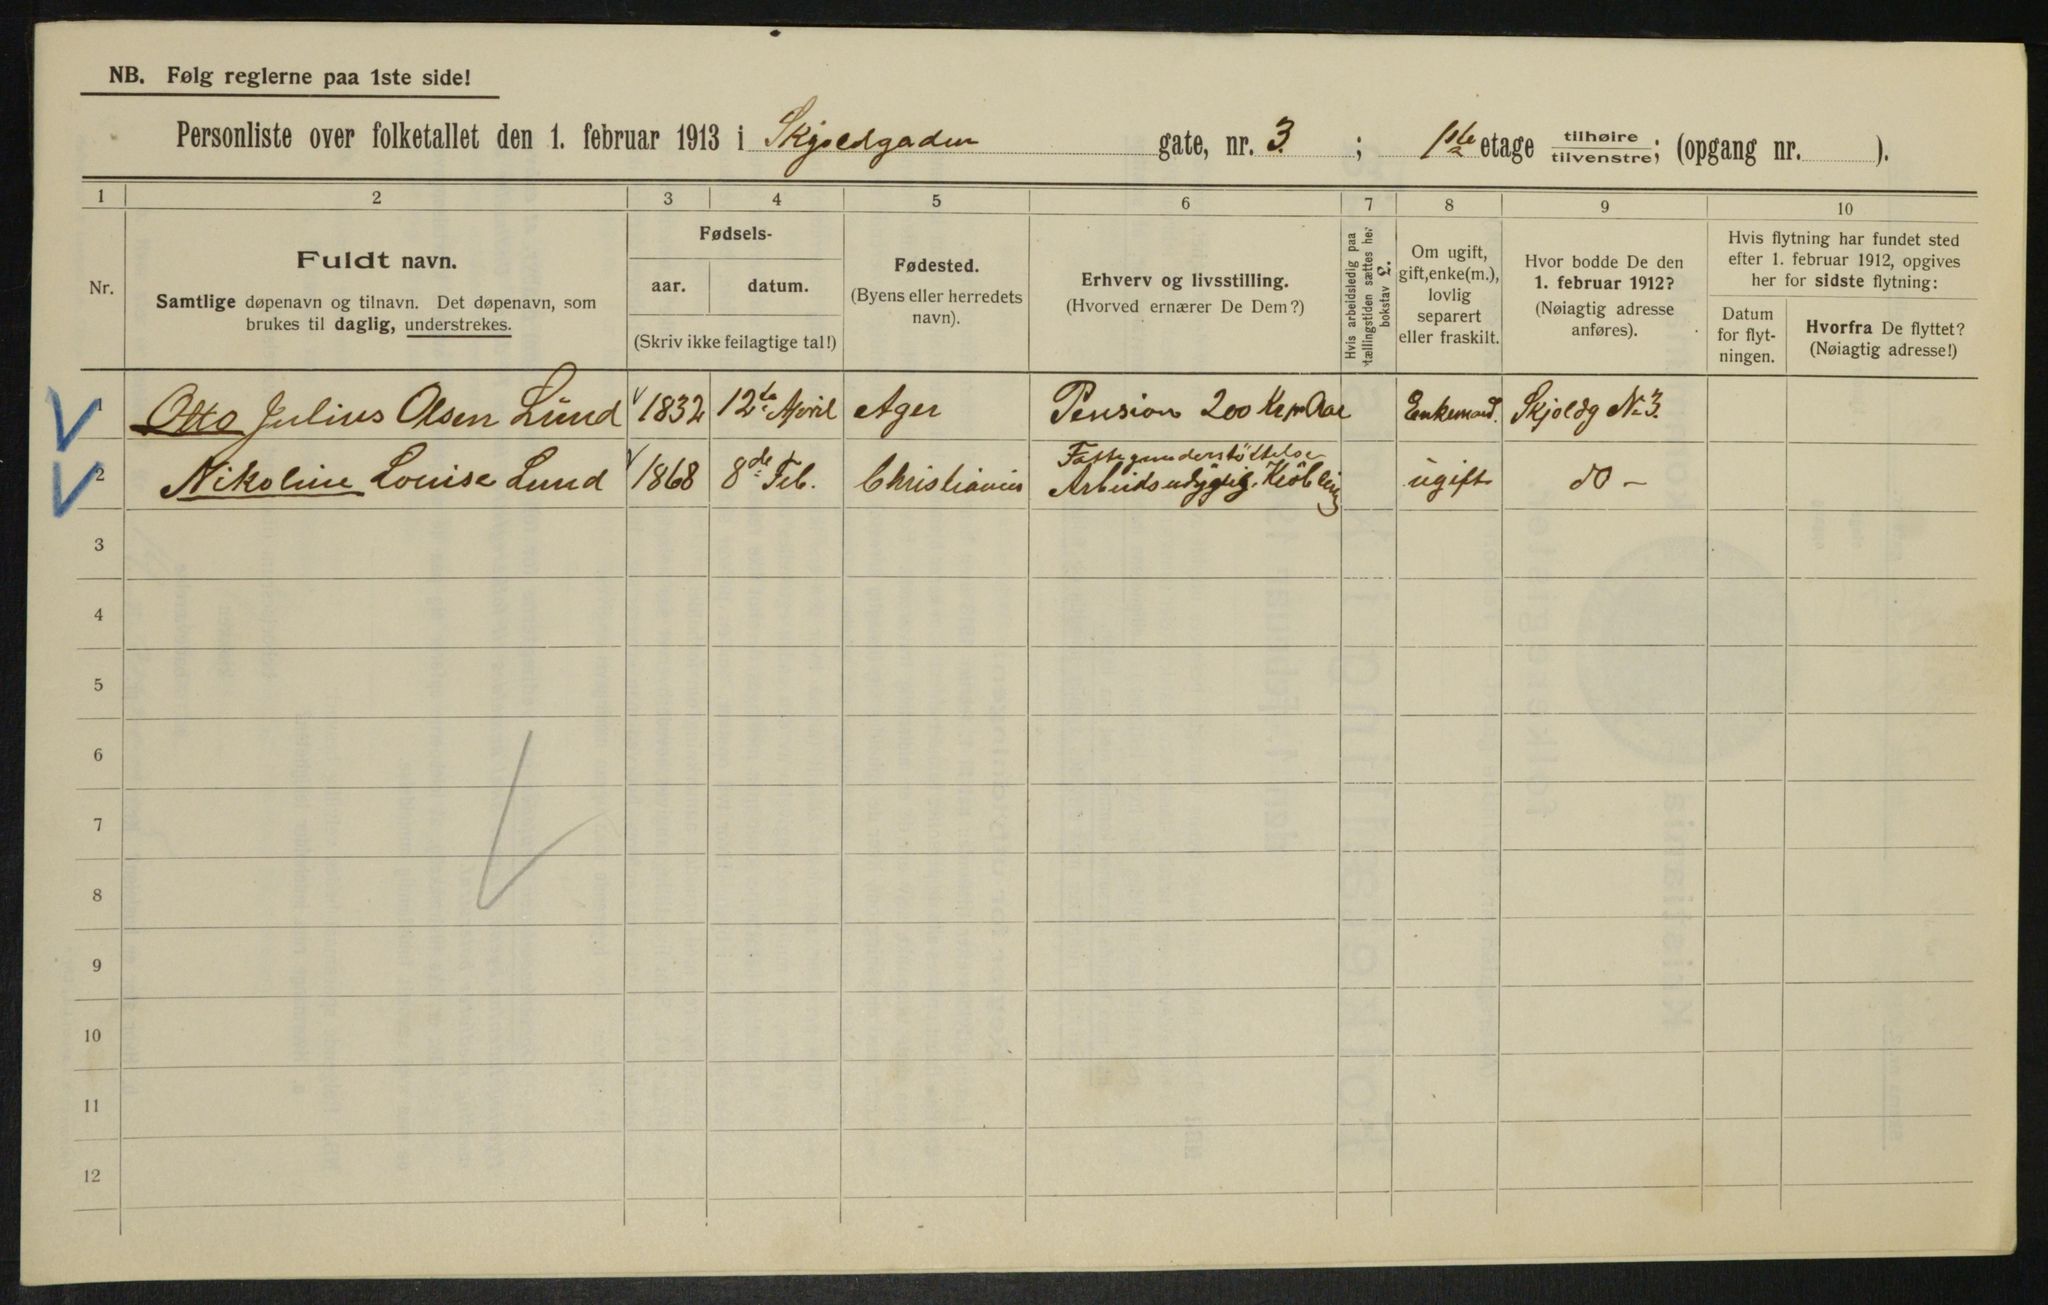 NB. Følg reglerne paa 1ste side!
Personliste over folketallet den 1. februar 1913 i Skjoldgaden gate, nr. 3. ; 1ste etage tilhøire tilvenstre; (opgang nr. ).
1 2 3 4 5 6 7 8 9 10
Nr.
Fuldt navn.
Samtlige døpenavn og tilnavn. Det døpenavn, som
brukes til daglig, understrekes.
Fødsels-
aar. datum.
(Skriv ikke feilagtige tal!)
Fødested.
(Byens eller herredets
navn).
Erhverv og livsstilling.
(Hvorved ernærer De Dem?)
Hvis arbeidsledig paa
tællingstiden sættes her
bokstav L.
Om ugift,
gift, enke(m.),
lovlig
separert
eller fraskilt.
Hvor bodde De den
1. februar 1912?
(Nøiagtig adresse
anføres).
Hvis flytning har fundet sted
efter 1. februar 1912, opgives
her for sidste flytning:
Datum
for flyt-
ningen.
Hvorfra De flyttet?
(Nøiagtig adresse!)
1 Otto Julius Olsen Lund 1832 12te April Ager Pension 200 Kr pr Aar Enkemand. Skjoldg No 3.
Fattigunderstöttelse
2 Nikoline Louise Lund 1868 8de Feb. Christiania Arbeidsudygtig. ugift do –
3
4
5
6
7
8
9
10
11
12